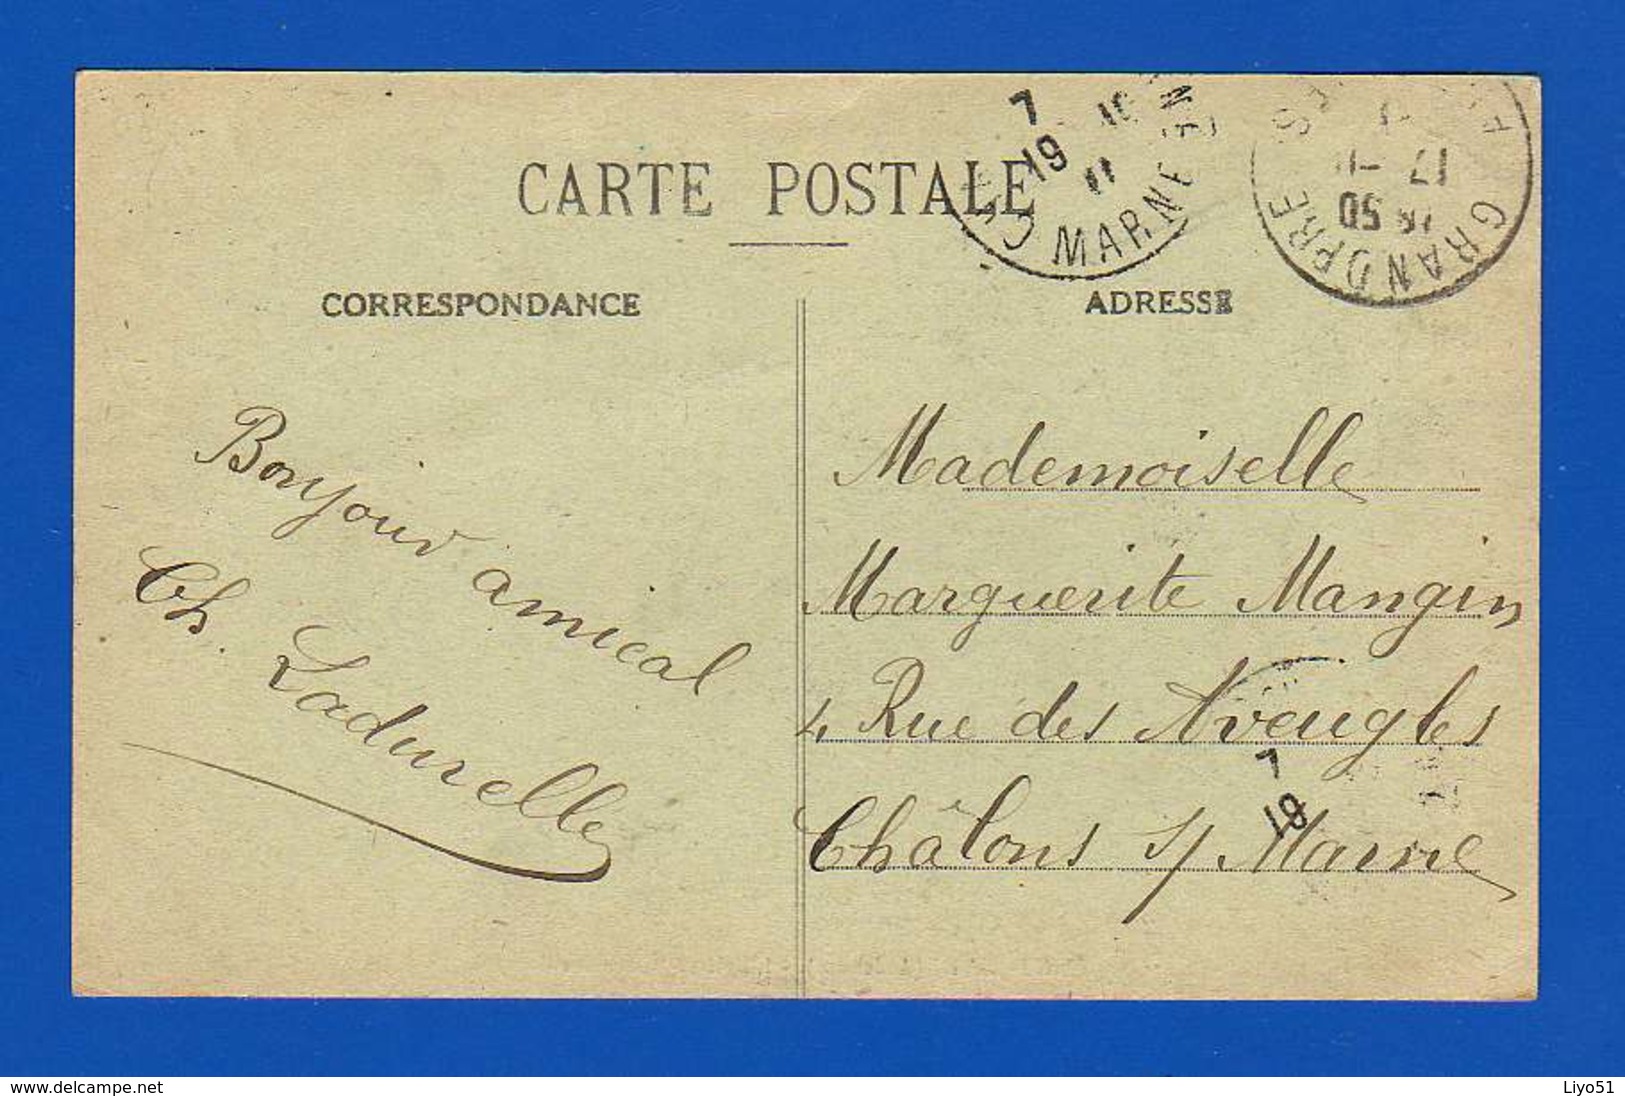 CARTE POSTALE
CORRESPONDANCE
ADRESSE
7
19
11
MARNE
GRANDPRE
17
16 50
Bonjour amical
Ch. Ladurelle
Mademoiselle
Marguerite Mangin
4 Rue des Aveugles
Châlons s/ Marne
7
19
www.delcampe.net
Liyo51